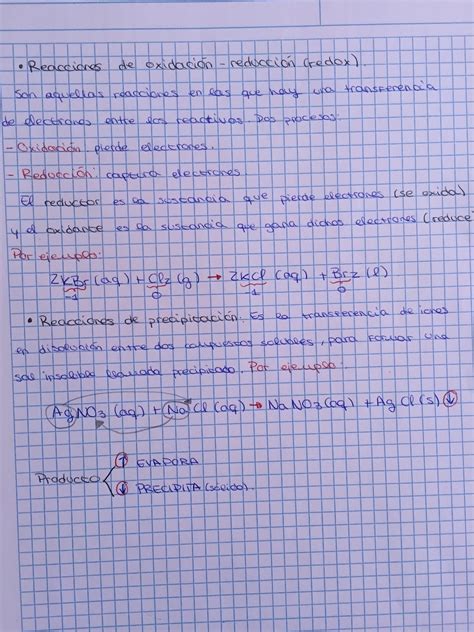 • Reacciones de oxidación - reducción (redox).
Son aquellas reacciones en las que hay una transferencia
de electrones entre los reactivos. Dos procesos:
- Oxidación: pierde electrones.
- Reducción: captura electrones
El reductor es la sustancia que pierde electrones (se oxida)
y el oxidante es la sustancia que gana dichos electrones (reduce)
Por ejemplo:
2KBr (aq) + Cl2 (g) → 2KCl (aq) + Br2 (l)
-1 0 -1 0
• Reacciones de precipitación. Es la transferencia de iones
en disolución entre dos compuestos solubles, para formar una
sal insoluble llamada precipitado. Por ejemplo:
AgNO3 (aq) + NaCl (aq) → NaNO3 (aq) + AgCl (s) ↓
↑ EVAPORA
Producto
↓ PRECIPITA (sólido).